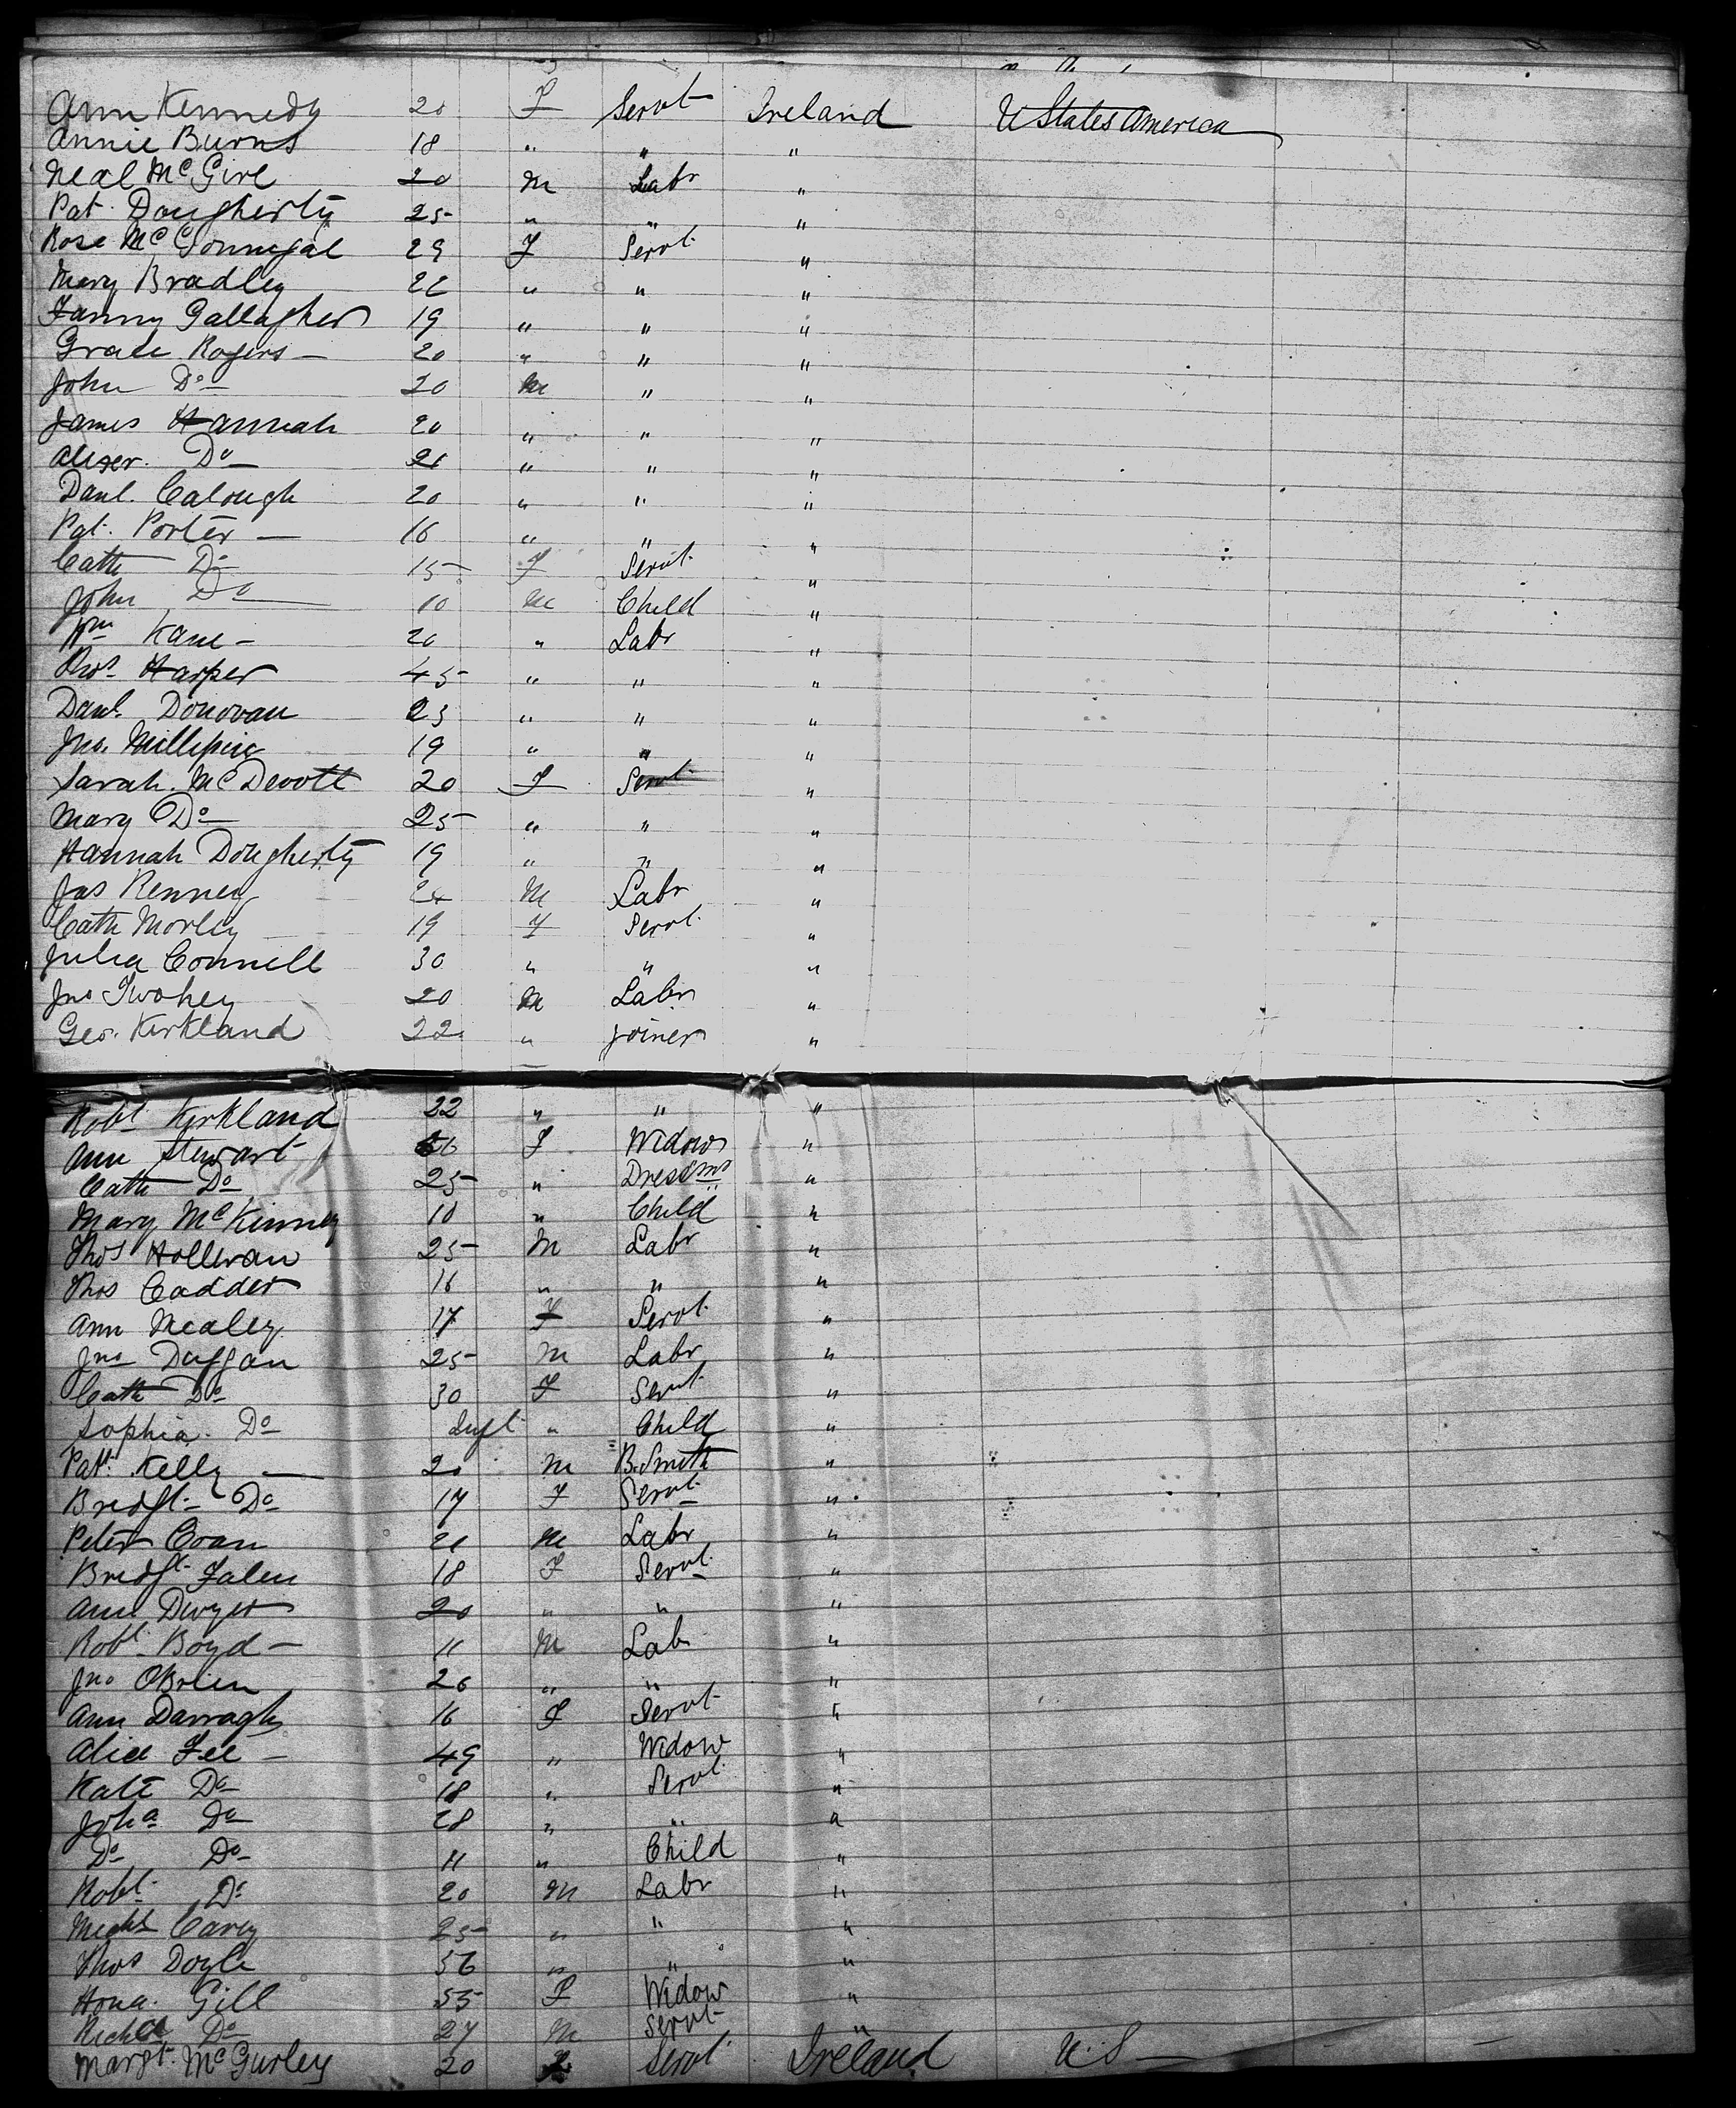 Ann Kennedy 20 F Servt Ireland U States America
Annie Burns 18 " " "
Neal McGirl 20 M Labr "
Pat. Dougherty 25 " " "
Rose McGonnigal 29 F Servt "
Mary Bradley 22 " " "
Fanny Gallagher 19 " " "
Grace Rogers — 20 " " "
John Do 20 M " "
James Hannah 20 " " "
Alexer. Do 21 " " "
Danl. Calough 20 " " "
Pat. Porter — 16 " " "
Cath Do 15 F Servt "
John Do 10 M Child "
Wm Kane — 20 " Labr "
Thos Harper 45 " " "
Danl. Donovan 23 " " "
Jno. 19 " " "
Sarah McDevott 20 F Servt "
Mary Do 25 " " "
Hannah Dougherty 19 " " "
Jas Kenney 24 M Labr "
Cath Morley 19 F Servt "
Julia Connell 30 " " "
Jno Twohey 20 M Labr "
Geo. Kirkland 22 " Joiner "
Robt Kirkland 22 " " "
Ann Stewart 56 F Widow "
Cath Do 25 " Dressmr "
Mary McKinney 10 " Child "
Thos Holleran 25 M Labr "
Thos Cadden 16 " " "
Ann Nealey 17 F Servt "
Jno Duggan 25 M Labr "
Cath Do 30 F Servt "
Sophia Do Inft " Child "
Patt. Kelly — 20 M B. Smith "
Bredgt. Do 17 F Servt "
Peter Coan 21 M Labr "
Bredgt. Falen 18 F Servt "
Ann Dwyer 20 " " "
Robt Boyd — 11 M Lab "
Jno OBrien 26 " " "
Ann Darragh 16 F Servt "
Alice Fee — 49 " Widow "
Kate Do 18 " Servt "
Joha Do 28 " " "
Do Do 11 " Child "
Robt Do 20 M Labr "
Michl Carey 25 " " "
Thos Doyle 56 " " "
Hona. Gill 55 F Widow "
Richd Do 27 M Servt "
Margt. McGurley 20 F Servt Ireland U.S —